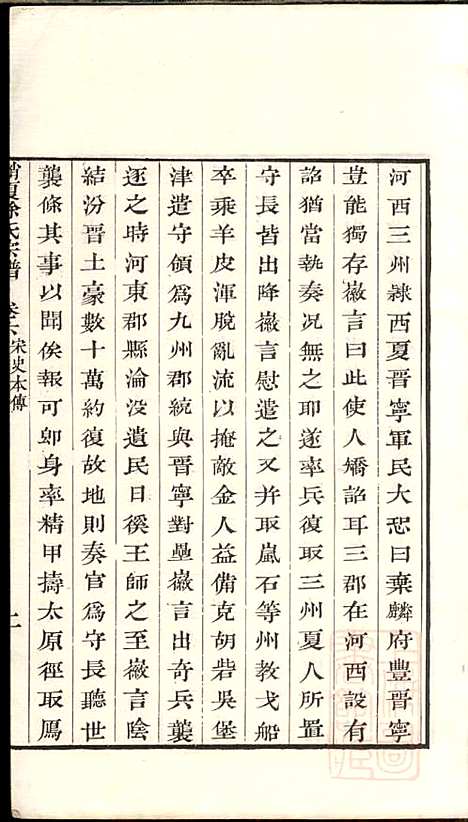 河西三州隷西夏晉寧軍民大恐曰棄麟府豐晉寧
豈能獨存徽言曰此使人矯詔耳三郡在河西設有
詔猶當執奏况無之耶遂率兵復取三州夏人所置
守長皆出降徽言慰遣之又并取嵐石等州教戈船
卒乘羊皮渾脫亂流以掩敵金人益備克胡砦吳堡
津遣守領爲九州郡統與晉寧對壘徽言出奇兵襲
逐之時河東郡縣淪没遺民日徯王師之至徽言陰
結汾晉土豪數十萬約復故地則奏官爲守長聽世
襲條其事以聞俟報可卽身率精甲擣太原徑取鴈
徐氏宗譜 卷六 宋史本傳 二